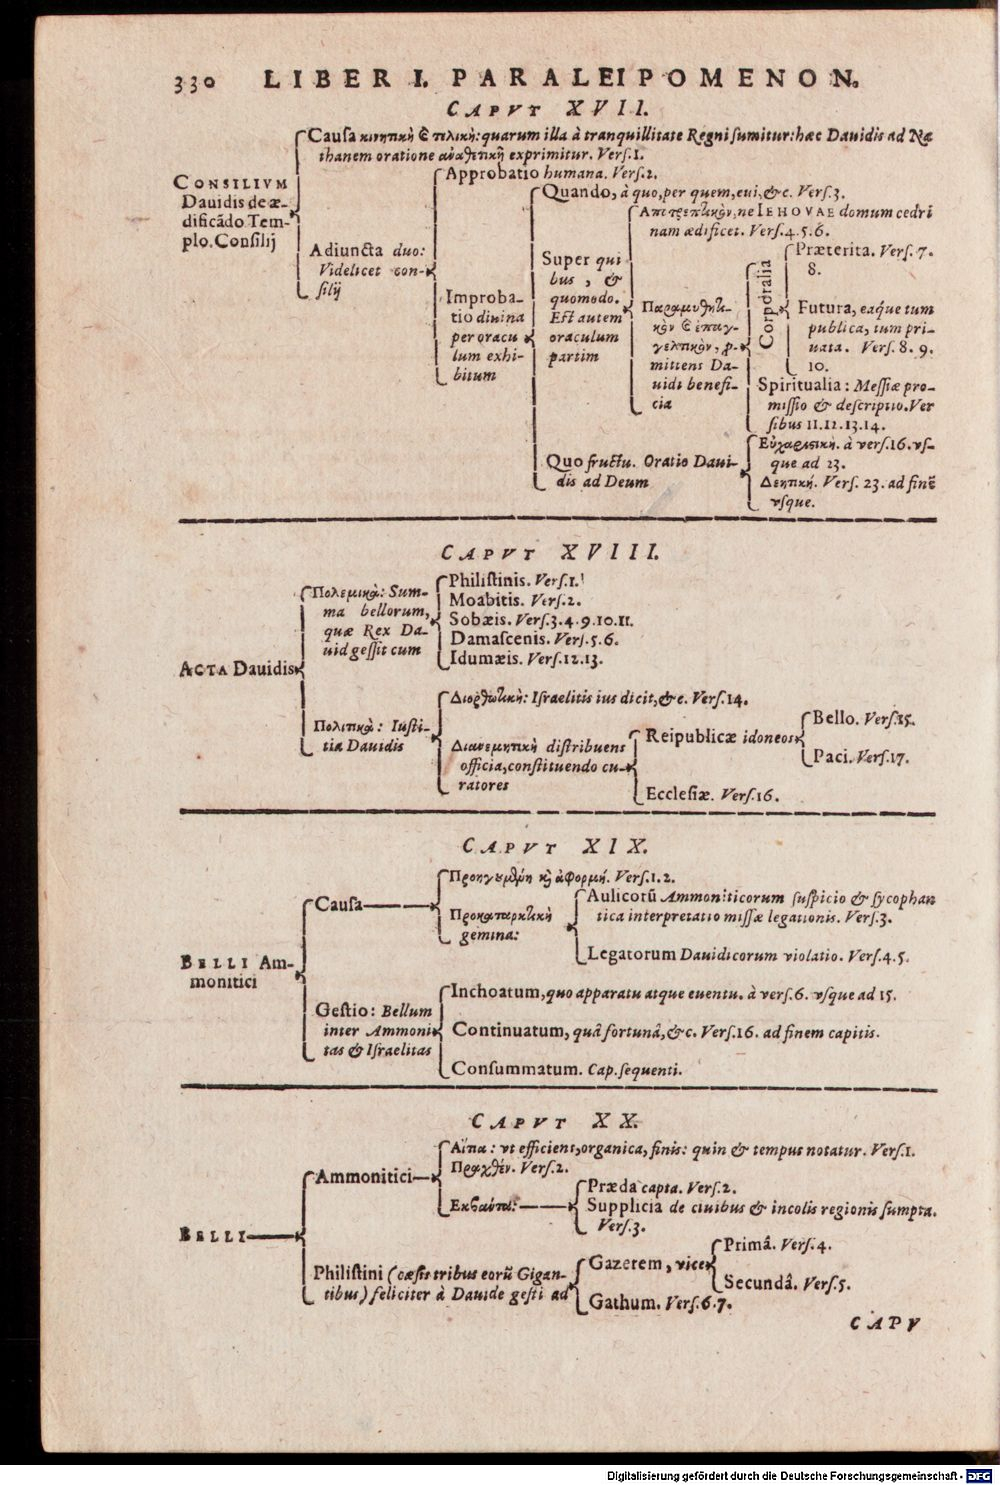 330 LIBER I. PARALEIPOMENON.
CAPVT XVII.
CONSILIVM
Dauidis de æ-
dificādo Tem-
plo. Consilij
Causa κινητικὴ & τελικὴ: quarum illa à tranquillitate Regni sumitur: hæc Dauidis ad Na
thanem oratione ἀναθετικῇ exprimitur. Vers. 1.
Adiuncta duo:
Videlicet con-
silij
Approbatio humana. Vers. 2.
Improba-
tio diuina
per oracu
lum exhi-
bitum
Quando, à quo, per quem, cui, &c. Vers. 3.
Super qui
bus, &
quomodo.
Est autem
oraculum
partim
Αποτρεπτικὸν, ne IEHOVAE domum cedri
nam ædificet. Vers. 4. 5. 6.
Παραμυθητι-
κὸν & ἐπαγ-
γελτικὸν, p-
mittens Da-
uidi benefi-
cia
Corporalia
Præterita. Vers. 7.
8.
Futura, eaq́ue tum
publica, tum pri-
uata. Vers. 8. 9.
10.
Spiritualia: Messiæ pro-
missio & descriptio. Ver
sibus 11. 12. 13. 14.
Quo fructu. Oratio Daui-
dis ad Deum
Εὐχαριστική. à vers. 16. vs-
que ad 23.
Δεητική. Vers. 23. ad finē
vsque.
CAPVT XVIII.
ACTA Dauidis
Πολεμικὰ: Sum-
ma bellorum,
quæ Rex Da-
uid gessit cum
Philistinis. Vers. 1.
Moabitis. Vers. 2.
Sobæis. Vers. 3. 4. 9. 10. 11.
Damascenis. Vers. 5. 6.
Idumæis. Vers. 12. 13.
Πολιτικὰ: Iusti-
tia Dauidis
Διορθωτικὴ: Israelitis ius dicit, &c. Vers. 14.
Διανεμητικὴ distribuens
officia, constituendo cu-
ratores
Reipublicæ idoneos
Bello. Vers. 15.
Paci. Vers. 17.
Ecclesiæ. Vers. 16.
CAPVT XIX.
BELLI Am-
monitici
Causa
Προηγουμένη κ̀ ἀφορμή. Vers. 1. 2.
Προκαταρκτικὴ
gemina:
Aulicorū Ammoniticorum suspicio & sycophan
tica interpretatio missæ legationis. Vers. 3.
Legatorum Dauidicorum violatio. Vers. 4. 5.
Gestio: Bellum
inter Ammoni
tas & Israelitas
Inchoatum, quo apparatu atque euentu. à vers. 6. vsque ad 15.
Continuatum, quâ fortunâ, &c. Vers. 16. ad finem capitis.
Consummatum. Cap. sequenti.
CAPVT XX.
BELLI
Ammonitici
Αἴτια: vt efficiens, organica, finis: quin & tempus notatur. Vers. 1.
Πραχθέν. Vers. 2.
Præda capta. Vers. 2.
Supplicia de ciuibus & incolis regionis sumpta.
Vers. 3.
Philistini (cæsis tribus eorū Gigan-
tibus) feliciter à Dauide gesti ad
Gazerem, vice
Primâ. Vers. 4.
Secundâ. Vers. 5.
Gathum. Vers. 6. 7.
CAPV
Digitalisierung gefördert durch die Deutsche Forschungsgemeinschaft - DFG